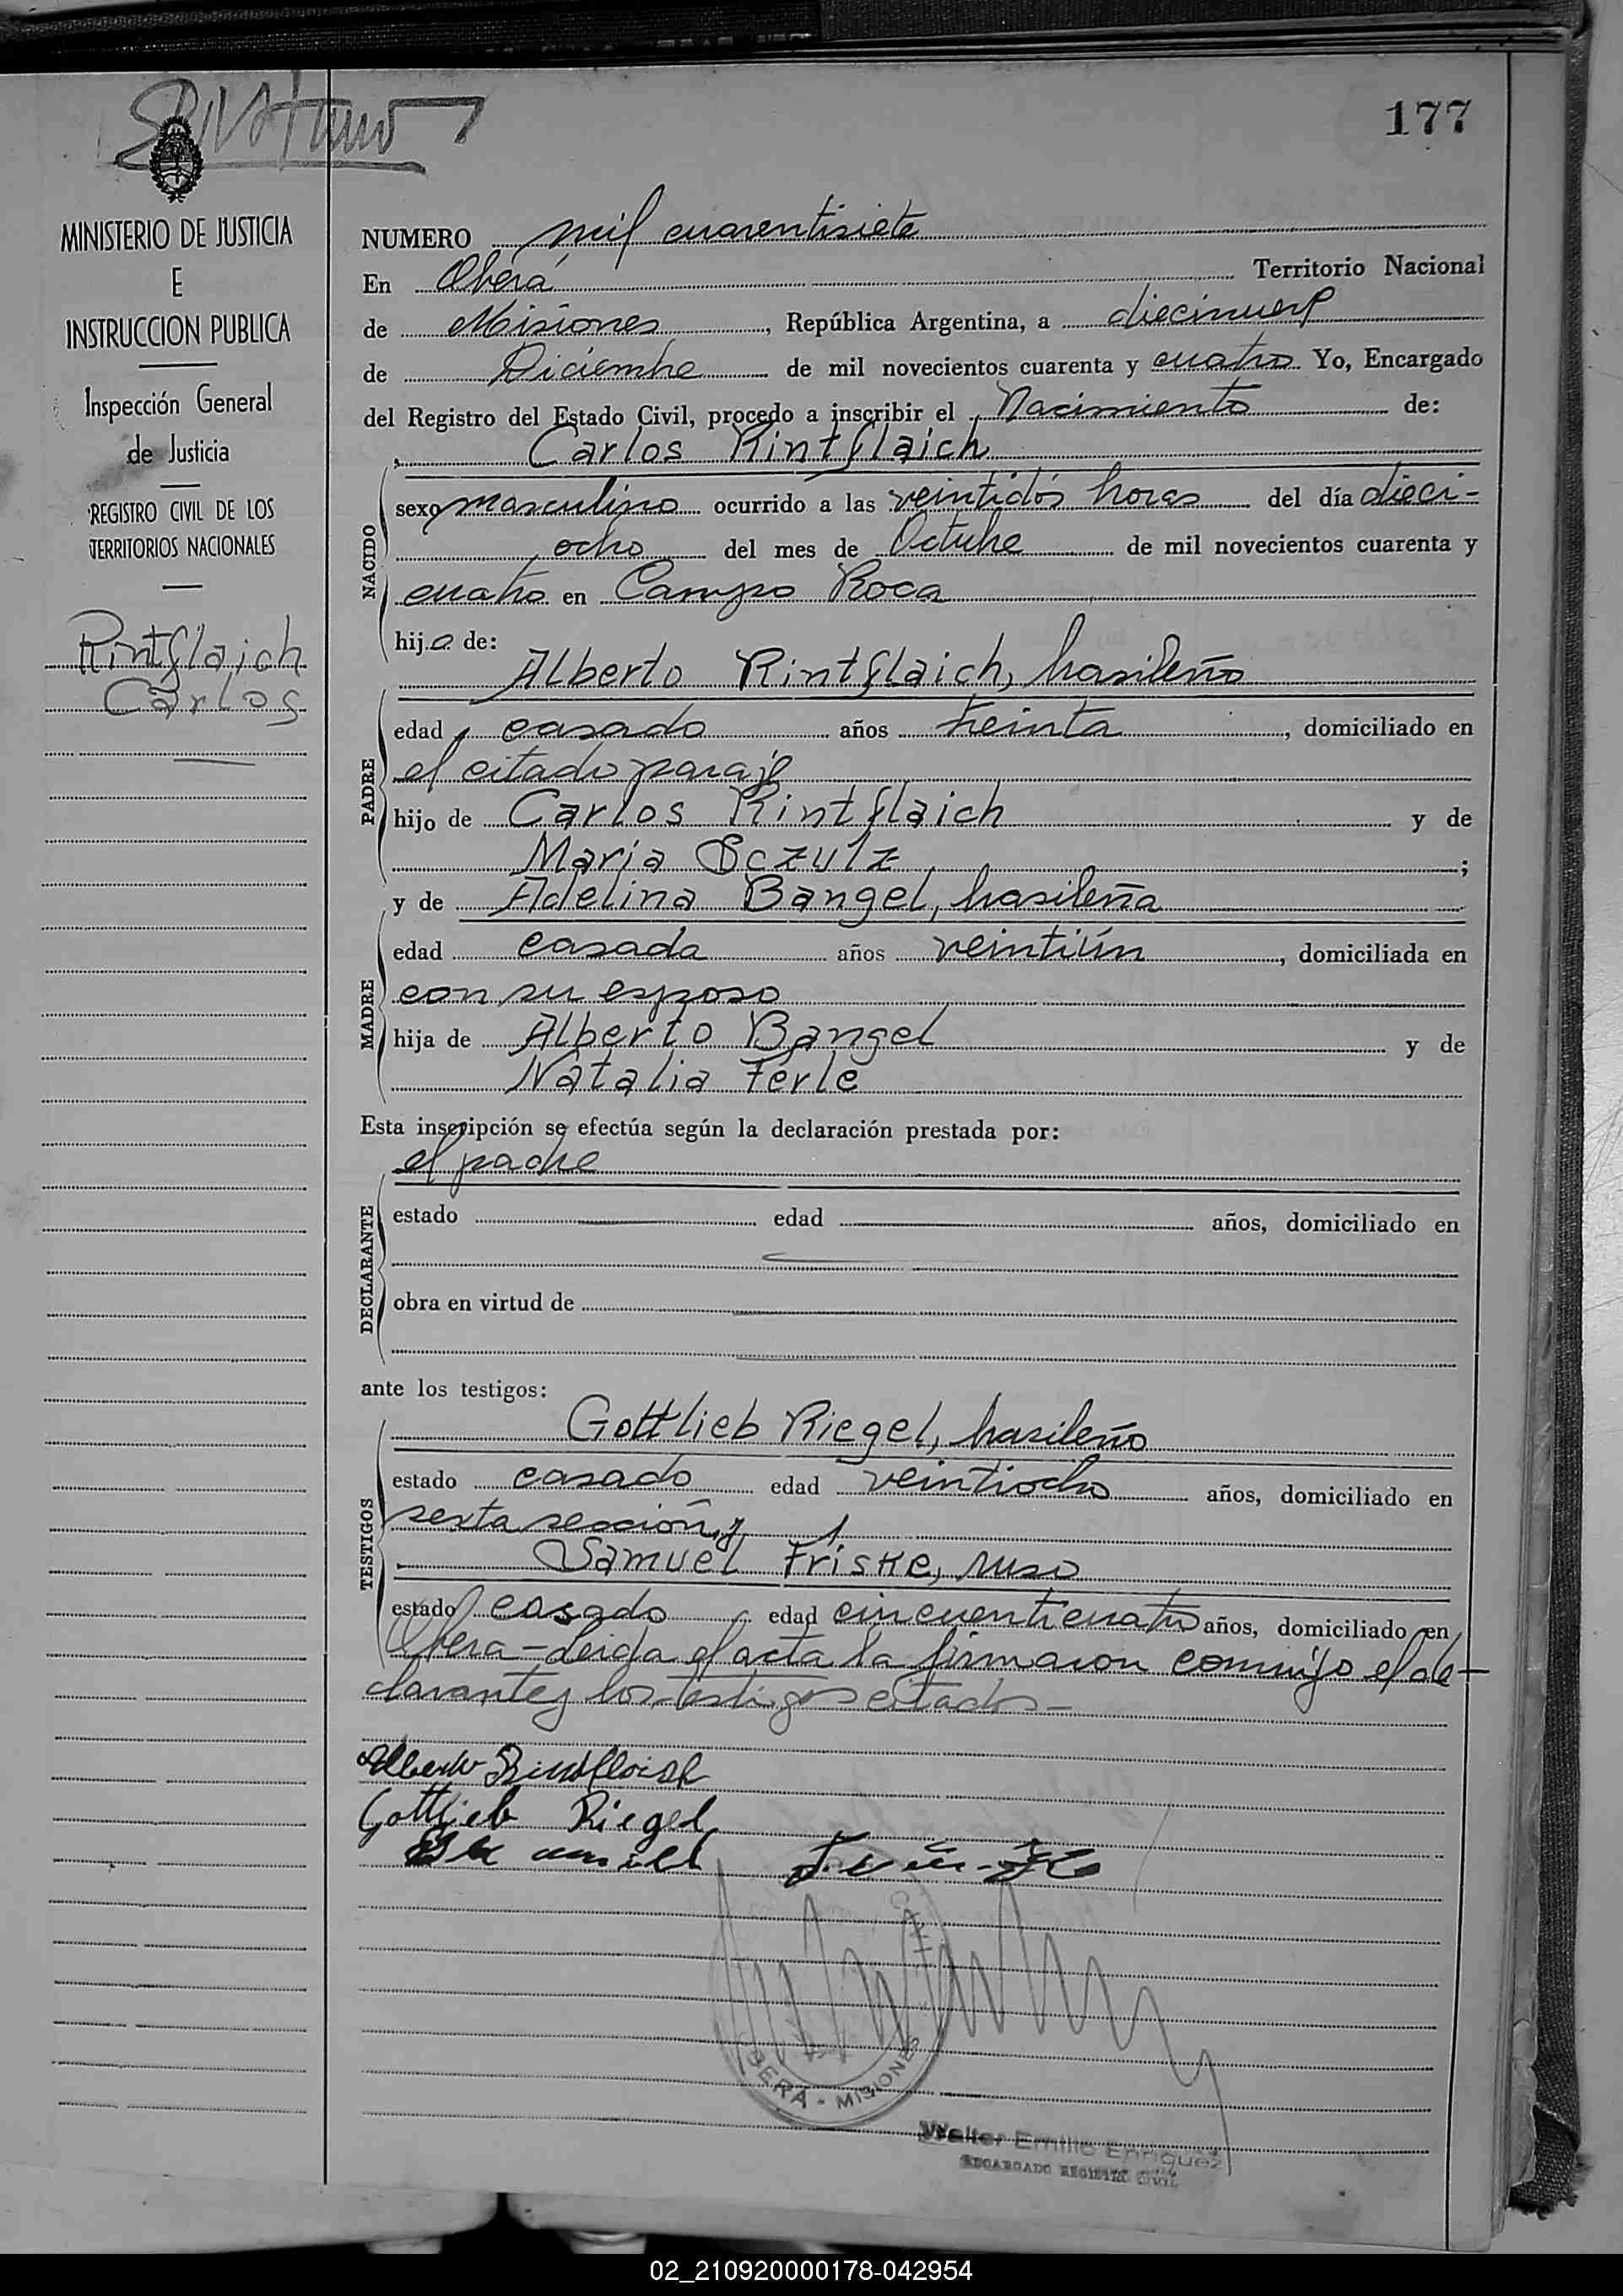 177
MINISTERIO DE JUSTICIA
E
INSTRUCCION PUBLICA
Inspección General
de Justicia
REGISTRO CIVIL DE LOS
TERRITORIOS NACIONALES
Rintflaich
Carlos
NUMERO mil cuarentisiete
En Oberá Territorio Nacional
de Misiones, República Argentina, a diecinueve
de Diciembre de mil novecientos cuarenta y cuatro Yo, Encargado
del Registro del Estado Civil, procedo a inscribir el Nacimiento de:
Carlos Rintflaich
NACIDO
sexo masculino ocurrido a las veintidós horas del día dieci-
ocho del mes de Octubre de mil novecientos cuarenta y
cuatro en Campo Roca
hijo de:
Alberto Rintflaich, brasileño
PADRE
edad casado años treinta, domiciliado en
el citado paraje
hijo de Carlos Rintflaich y de
Maria Sczulz;
y de Adelina Bangel, brasileña
MADRE
edad casada años veintiún, domiciliada en
con su esposo
hija de Alberto Bangel y de
Natalia Ferle
Esta inscripción se efectúa según la declaración prestada por:
el padre
DECLARANTE
estado edad años, domiciliado en
obra en virtud de
ante los testigos:
TESTIGOS
Gottlieb Riegel, brasileño
estado casado edad veintiocho años, domiciliado en
sexta sección y
Samuel Friske, ruso
estado casado edad cincuenticuatro años, domiciliado en
Oberá - Leida el acta la firmaron conmigo el de-
clarante y los testigos citados -
Alberto Rintflaich
Gottlieb Riegel
OBERA - MISIONES
Walter Emilio Enriquez
ENCARGADO REGISTRO CIVIL
02_210920000178-042954